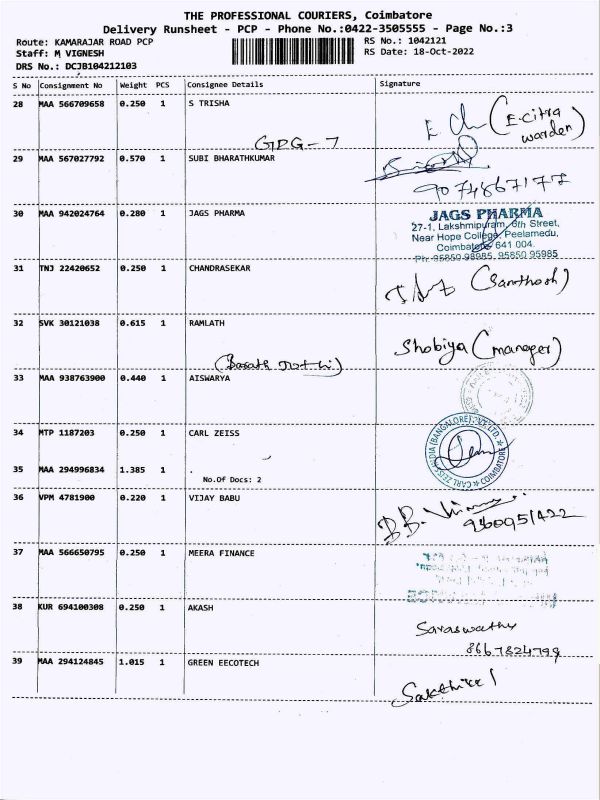 THE PROFESSIONAL COURIERS, Coimbatore
Delivery Runsheet - PCP - Phone No.:0422-3505555 - Page No.:3
Route: KAMARAJAR ROAD PCP
RS No.: 1042121
Staff: M VIGNESH
RS Date: 18-Oct-2022
DRS No.: DCJB104212103
S No Consignment No Weight PCS Consignee Details Signature
28 MAA 566709658 0.250 1 S TRISHA
(E.citra
warden)
GPG-7
29 MAA 567027792 0.570 1 SUBI BHARATHKUMAR
9074867177
30 MAA 942024764 0.280 1 JAGS PHARMA
JAGS PHARMA
27-1, Lakshmipuram, 6th Street,
Near Hope College, Peelamedu,
Coimbatore 641 004.
Ph: 95850 98985, 95850 95985
31 TNJ 22420652 0.250 1 CHANDRASEKAR
(Santhosh)
32 SVK 30121038 0.615 1 RAMLATH
Shobiya (manager)
33 MAA 938763900 0.440 1 AISWARYA
34 MTP 1187203 0.250 1 CARL ZEISS
CARL ZEISS INDIA (BANGALORE) PVT. LTD. COIMBATORE
35 MAA 294996834 1.385 1 .
No.Of Docs: 2
36 VPM 4781900 0.220 1 VIJAY BABU
37 MAA 566650795 0.250 1 MEERA FINANCE
38 KUR 694100308 0.250 1 AKASH
Saraswathy
8667824799
39 MAA 294124845 1.015 1 GREEN EECOTECH
Sakthivel